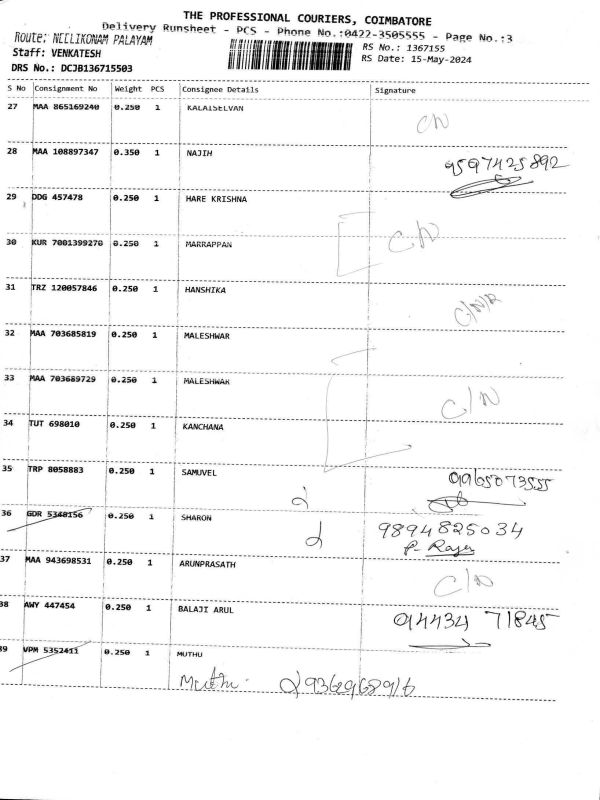 THE PROFESSIONAL COURIERS, COIMBATORE
Delivery Runsheet - PCS - Phone No.:0422-3505555 - Page No.:3
Route: NEELIKONAM PALAYAM
RS No.: 1367155
Staff: VENKATESH
RS Date: 15-May-2024
DRS No.: DCJB136715503
S No Consignment No Weight PCS Consignee Details Signature
27 MAA 865169240 0.250 1 KALAISELVAN
C/N
28 MAA 108897347 0.350 1 NAJIH
9597425892
29 DDG 457478 0.250 1 HARE KRISHNA
C/N
30 KUR 7001399270 0.250 1 MARRAPPAN
31 TRZ 120057846 0.250 1 HANSHIKA
C/N/R
32 MAA 703685819 0.250 1 MALESHWAR
33 MAA 703689729 0.250 1 MALESHWAR
C/N
34 TUT 698010 0.250 1 KANCHANA
35 TRP 8058883 0.250 1 SAMUVEL
9965073555
36 GDR 5348156 0.250 1 SHARON
9894825034
P. Rajan
37 MAA 943698531 0.250 1 ARUNPRASATH
C/N
38 AWY 447454 0.250 1 BALAJI ARUL
94434 71845
39 VPM 5352411 0.250 1 MUTHU
Muthu 9369968916